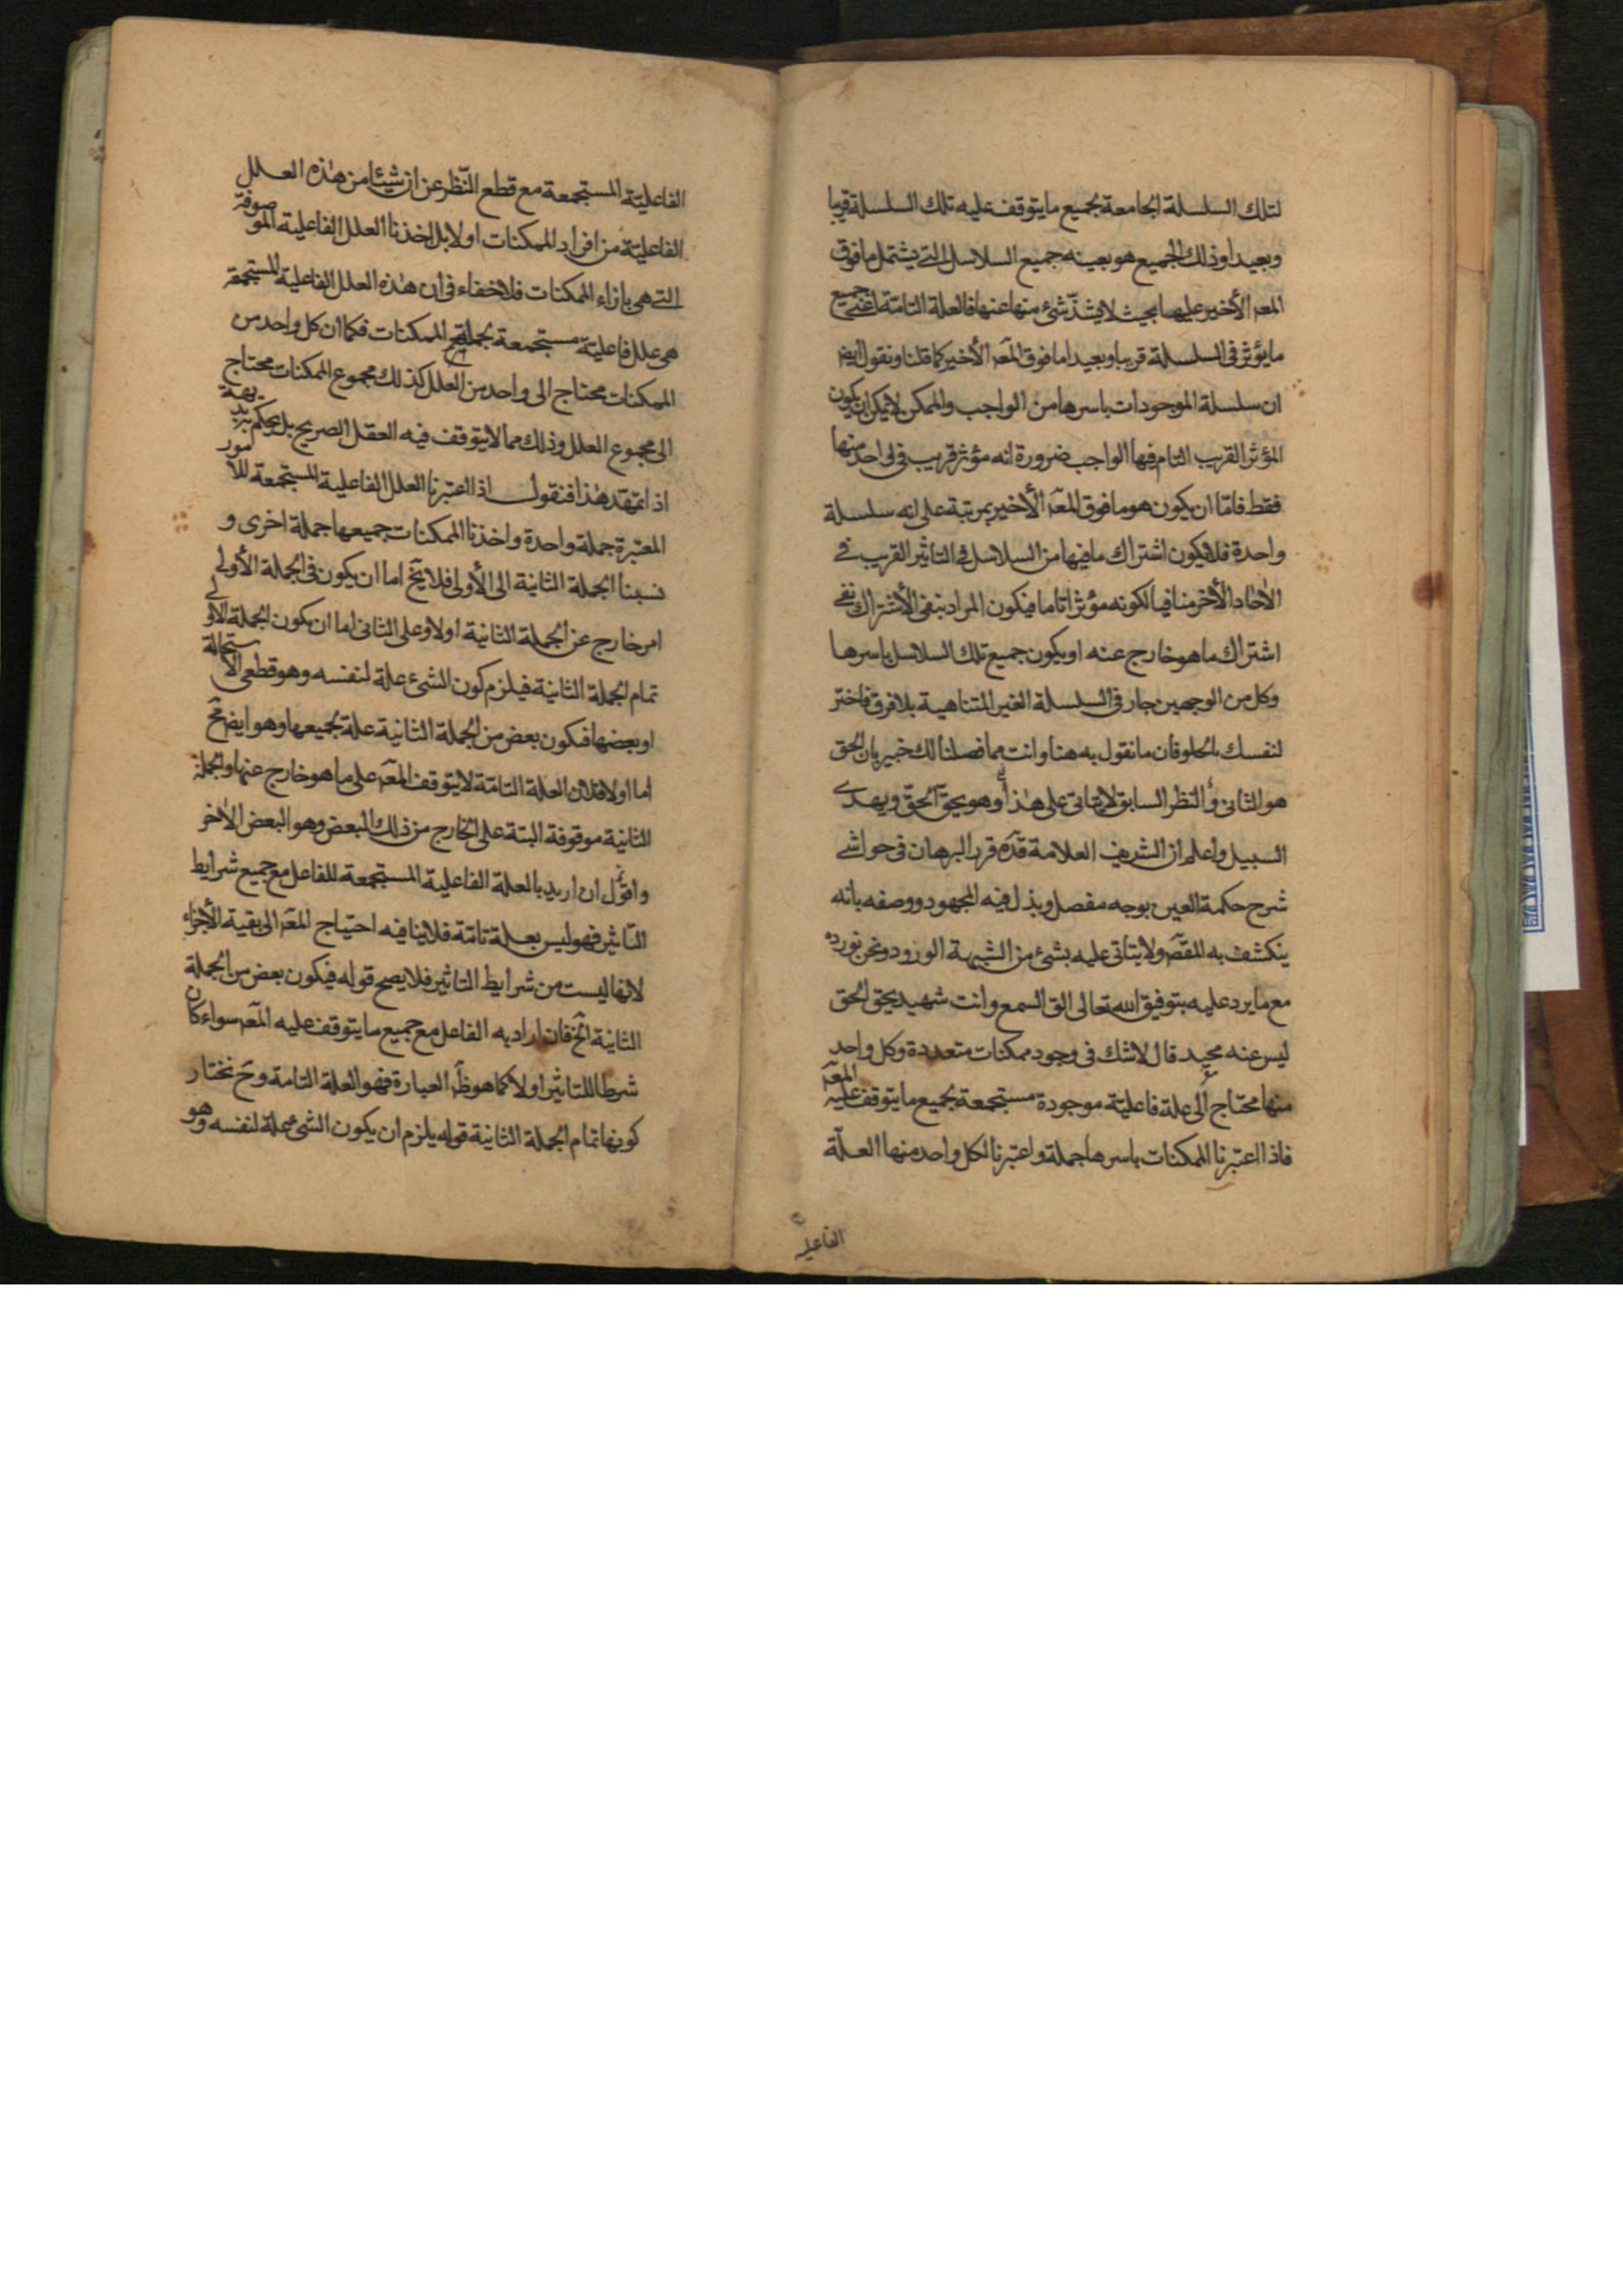 لتلك السلسلة الجامعة بجميع ما يتوقف عليه تلك السلسلة قريبا
وبعيدا وذلك الجميع هو بعينه جميع السلاسل التي يشتمل ما فوق
المعه الأخير عليها بحيث لا يشذ شئ منها عنها فالعلة التامة اعني جميع
ما يؤثر في السلسلة قريبا وبعيدا ما فوق المعه الأخير كما قلنا ونقول ايضا
ان سلسلة الموجودات باسرها من الواجب والممكن لا يمكن ان يكون
المؤثر القريب التام فيها الواجب ضرورة انه مؤثر قريب في واحد منها
فقط فاما ان يكون هو ما فوق المعه الأخير بمرتبة على انه سلسلة
واحدة فلا يكون اشتراك ما فيها من السلاسل في التاثير القريب في
الآحاد الأخر منافيا لكونه مؤثرا تاما فيكون المراد بنفي الأشتراك نفي
اشتراك ما هو خارج عنه او يكون جميع تلك السلاسل باسرها
وكل من الوجهين جار في السلسلة الغير المتناهية بلا فرق فاختر
لنفسك ما يحلو فان ما نقول به هنا وانت مما فصلنا لك خبير بان الحق
هو الثاني والنظر السابق لا يتاتى على هذا وهو يحق الحق ويهدي
السبيل واعلم ان الشريف العلامة قده قرر البرهان في حواشي
شرح حكمة العين بوجه مفصل وبذل فيه المجهود ووصفه بانه
ينكشف به المقصه ولا يتاتى عليه بشئ من الشبهة الورود ونحن نورده
مع ما يرد عليه بتوفيق الله تعالى الق السمع وانت شهيد يحق الحق
ليس عنه محيد قال لا شك في وجود ممكنات متعددة وكل واحد
منها محتاج الى علة فاعلية موجودة مستجمعة بجميع ما يتوقف عليه المعه
فاذا اعتبرنا الممكنات باسرها جملة واعتبرنا لكل واحد منها العلة
الفاعلية
الفاعلية المستجمعة مع قطع النظر عن ان شيئا من هذه العلل
الفاعلية من افراد الممكنات او لا بل اخذنا العلل الفاعلية الموصوفة
التي هي بازاء الممكنات فلا خفاء في ان هذه العلل الفاعلية المستجمعة
هي علل فاعلية مستجمعة بجملة الممكنات فكما ان كل واحد من
الممكنات محتاج الى واحد من العلل كذلك مجموع الممكنات محتاج
الى مجموع العلل وذلك مما لا يتوقف فيه العقل الصريح بل يحكم به بديهة
اذا تمهد هذا فنقول اذا اعتبرنا العلل الفاعلية المستجمعة للامور
المعتبرة جملة واحدة واخذنا الممكنات جميعها جملة اخرى و
نسبنا الجملة الثانية الى الأولى فلا يخ اما ان يكون في الجملة الأولى
امر خارج عن الجملة الثانية او لا وعلى الثاني اما ان يكون الجملة الاولى
تمام الجملة الثانية فيلزم كون الشئ علة لنفسه وهو قطعي الاستحالة
او بعضها فيكون بعض من الجملة الثانية علة بجميعها وهو ايض مح
اما اولا فلان العلة التامة لا يتوقف المعه على ما هو خارج عنها والجملة
الثانية موقوفة البتة على الخارج من ذلك البعض وهو البعض الاخر
واقول ان اريد بالعلة الفاعلية المستجمعة للفاعل مع جميع شرايط
التاثير فهو ليس بعلة تامة فلا ينافيه احتياج المعه الى بقية الأجزاء
لانها ليست من شرايط التاثير فلا يصح قوله فيكون بعض من الجملة
الثانية الخ فان اراد به الفاعل مع جميع ما يتوقف عليه المعه سواء كان
شرطا للتاثير او لا كما هو ظه العبارة فهو العلة التامة وح نختار
كونها تمام الجملة الثانية قوله يلزم ان يكون الشئ علة لنفسه وهو